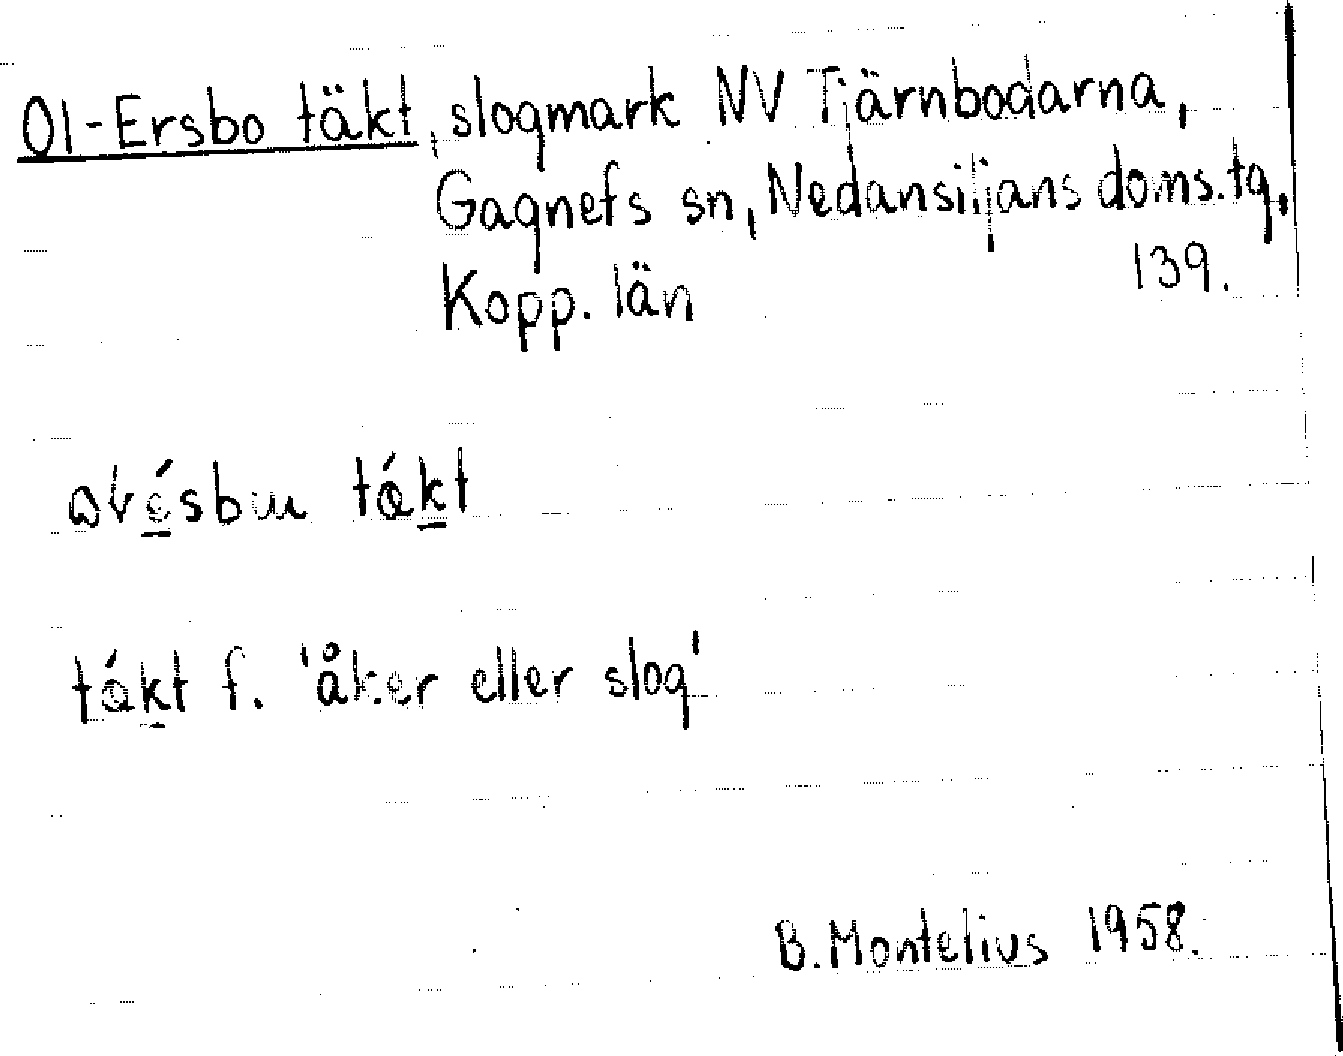 Ol-Ersbo täkt, slogmark NV Tjärnbodarna,
Gagnefs sn, Nedansiljans doms.tg,
Kopp. län 139.
täkt f. 'åker eller slog'
B. Montelius 1958.